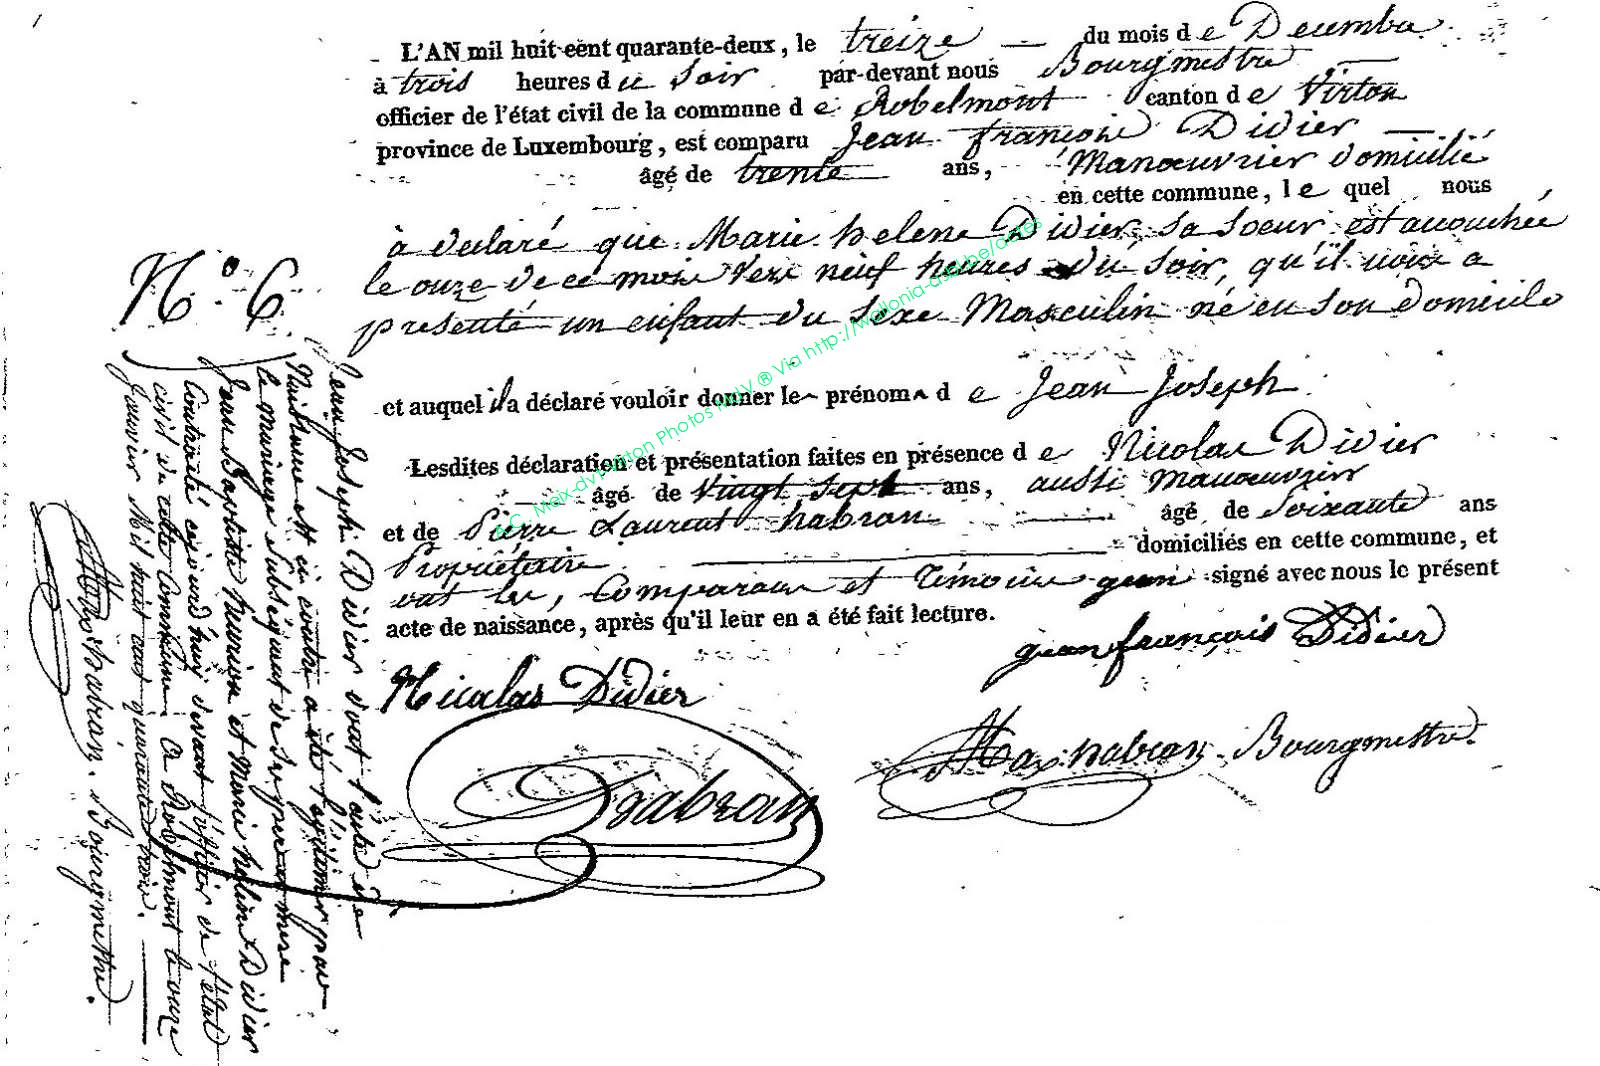 L'AN mil huit cent quarante-deux, le treize du mois de Decembre
à trois heures du Soir par-devant nous Bourgmestre
officier de l'état civil de la commune de Robelmont canton de Virton
province de Luxembourg, est comparu Jean françois Didier
âgé de trente ans, Manœuvrier domicilié
en cette commune, le quel nous
à declaré que Marie helene Didier, Sa Soeur est accouchée
le onze de ce mois vers neuf heures du Soir, qu'il nous a
presenté un enfant du Sexe Masculin né en son domicile
et auquel il a déclaré vouloir donner le prénom de Jean Joseph
Lesdites déclaration et présentation faites en présence de Nicolas Didier
âgé de vingt sept ans, aussi Manoeuvrier
et de Pierre Laurent habran âgé de Soixante ans
Propriétaire domiciliés en cette commune, et
ont les, Comparant et Témoins signé avec nous le présent
acte de naissance, après qu'il leur en a été fait lecture.
jean françois Didier
Nicolas Didier
habran Bourgmestre.
habran
N° 6
Jean Joseph Didier dont l'acte de
Naissance est ci contre a été légitimé par
le mariage Subséquent de Ses pere et mere
Jean Baptiste henrion et Marie helene Didier
Contracté cejourd'hui devant l'officier de l'état
civil de cette Commune. A Robelmont le onze
Janvier Mil huit cent quarante trois.
habran. Bourgmestre.
A.C. Meix-dvt-Virton Photos MdV ® Via http://wallonia-asbl.be/actes